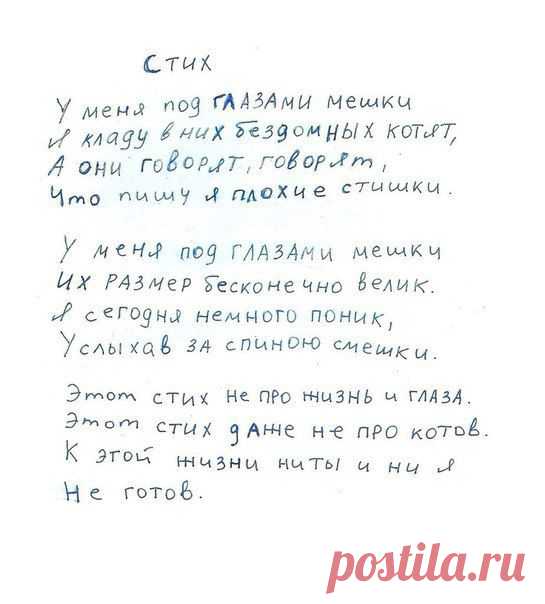 Стих
У меня под глазами мешки
Я кладу в них бездомных котят,
А они говорят, говорят,
Что пишу я плохие стишки.
У меня под глазами мешки
Их размер бесконечно велик.
Я сегодня немного поник,
Услыхав за спиною смешки.
Этот стих не про жизнь и глаза.
Этот стих даже не про котов.
К этой жизни ни ты и ни я
Не готов.
postila.ru